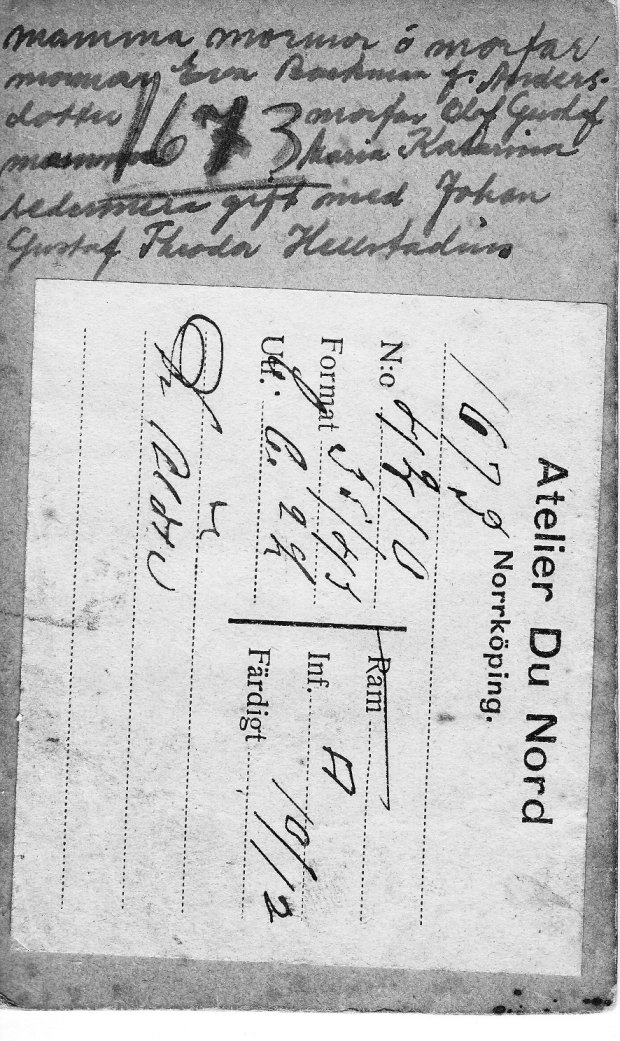 mamma mormor ó morfar
mormor Eva Backman f. Anders-
dotter morfar Olof Gustaf
1673
mamma Maria Katarina
sedermera gift med Johan
Gustaf Theodor Hellstadius
Atelier Du Nord
Norrköping.
1673
N:o 4210
Format
Utf.
Ram
Inf. A
Färdigt 10/12